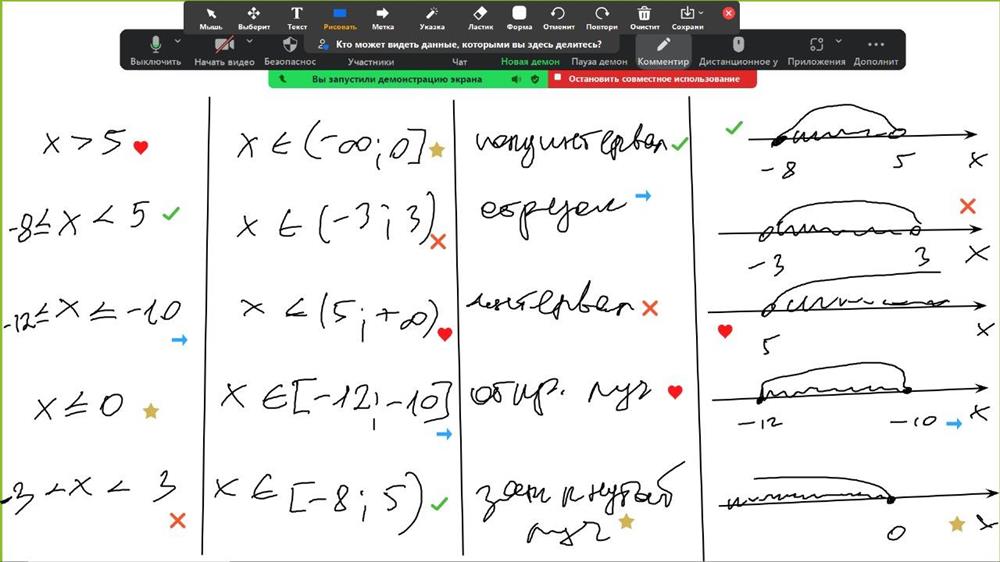 Мышь Выберит Текст Рисовать Метка Указка Ластик Форма Отменит Повтори Очистит Сохрани
Кто может видеть данные, которыми вы здесь делитесь?
Выключить Начать видео Безопаснос Участники Чат Новая демон Пауза демон Комментир Дистанционное у Приложения Дополнит
Вы запустили демонстрацию экрана Остановить совместное использование
x > 5
-8 ≤ x < 5
-12 ≤ x ≤ -10
x ≤ 0
-3 < x < 3
x ∈ (-∞; 0]
x ∈ (-3; 3)
x ∈ (5; +∞)
x ∈ [-12; -10]
x ∈ [-8; 5)
полуинтервал
отрезок
интервал
откр. луч
замкнутый
луч
-8 5 x
-3 3 x
5 x
-12 -10 x
0 x